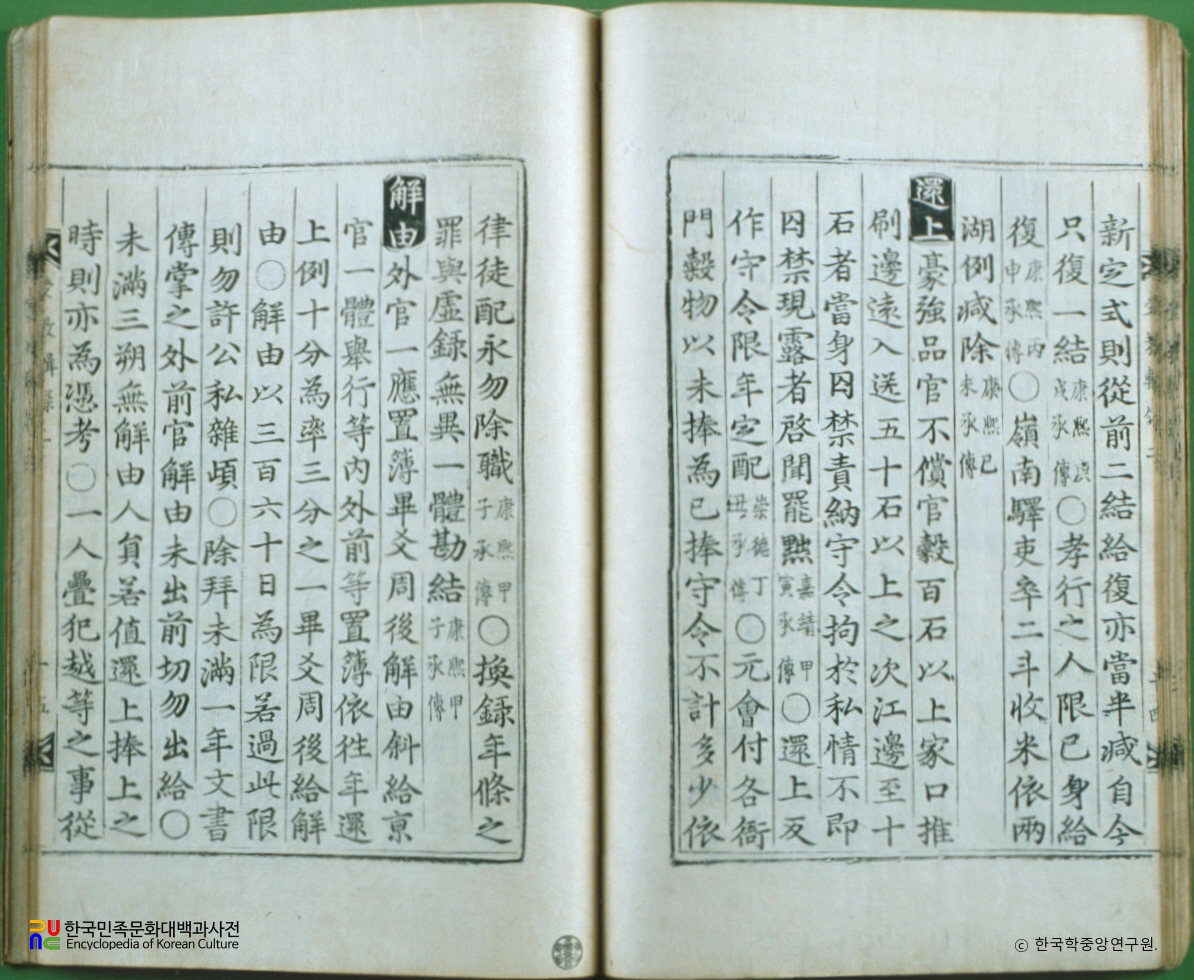 新定式則從前二結給復亦當半減自今
只復一結康熙庚戌承傳〇孝行之人限己身給
復康熙丙申承傳〇嶺南驛吏率二斗收米依兩
湖例減除康熙己未承傳
還上豪強品官不償官穀百石以上家口推
刷邊遠入送五十石以上之次江邊至十
石者當身囚禁責納守令拘於私情不即
囚禁現露者啓聞罷黜嘉靖甲寅承傳〇還上反
作守令限年定配崇德丁丑承傳〇元會付各衙
門穀物以未捧為已捧守令不計多少依
律徒配永勿除職康熙甲子承傳〇換錄年條之
罪與虛錄無異一體勘結康熙甲子承傳
解由外官一應置簿畢爻周後解由斜給京
官一體舉行等內外前等置簿依徃年還
上例十分為率三分之一畢爻周後給解
由〇解由以三百六十日為限若過此限
則勿許公私雜頉〇除拜未滿一年文書
傳掌之外前官解由未出前切勿出給〇
未滿三朔無解由人負若值還上捧上之
時則亦為憑考〇一人疊犯越等之事從
한국민족문화대백과사전
Encyclopedia of Korean Culture
© 한국학중앙연구원.